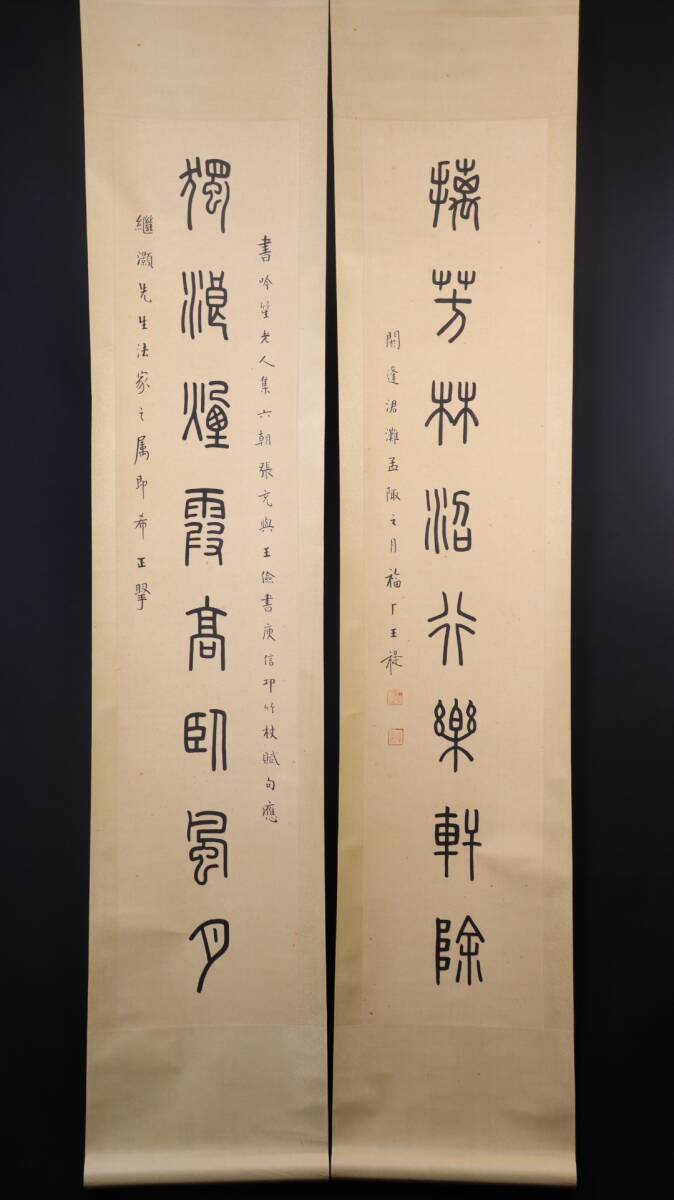 獨浪煙霞高臥風月
書吟笙老人集六朝張充與王儉書庾信邛竹杖賦句應
繼灝先生法家之属即希正擘
摛芳林沼行樂軒除
閼逢涒灘孟陬之月福厂王禔